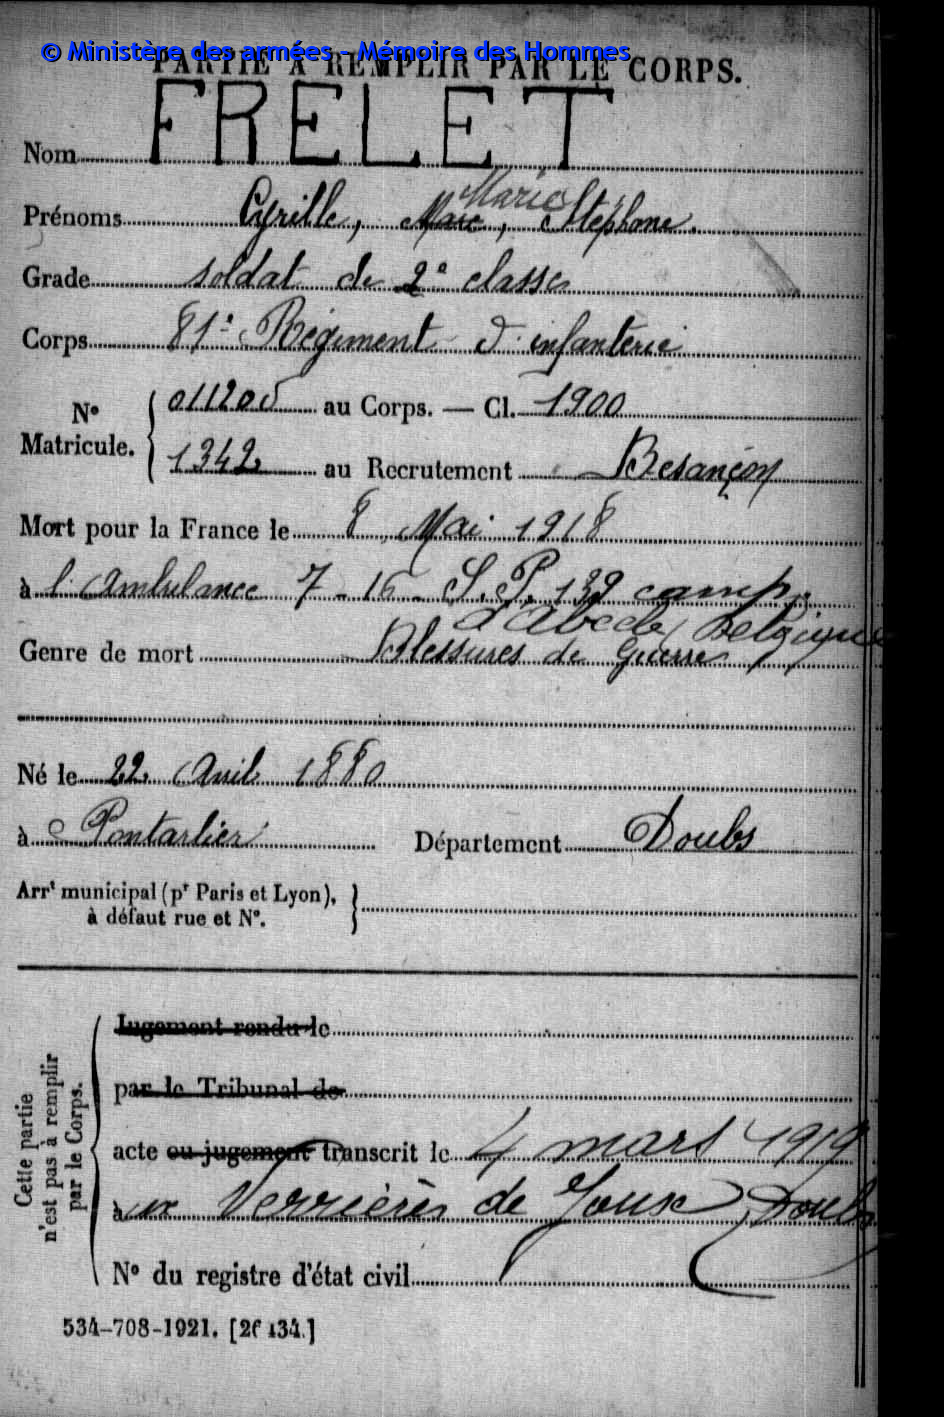 © Ministère des armées - Mémoire des Hommes
PARTIE À REMPLIR PAR LE CORPS.
Nom FRELET
Marie
Prénoms Cyrille, Marc, Stéphane.
Grade soldat de 2e classe
Corps 81e Régiment d'infanterie
No Matricule. 011205 au Corps. — Cl. 1900
1342 au Recrutement Besançon
Mort pour la France le 8 Mai 1918
à l'Ambulance 7 - 16 - S. P. 139 camp
d'Abeele, Belgique
Genre de mort Blessures de Guerre
Né le 22 Avril 1880
à Pontarlier Département Doubs
Arrt municipal (pr Paris et Lyon),
à défaut rue et No.
Cette partie
n'est pas à remplir
par le Corps.
Jugement rendu le
par le Tribunal de
acte ou jugement transcrit le 4 mars 1919
aux Verrières de Joux, Doubs
No du registre d'état civil
534-708-1921. [26434.]